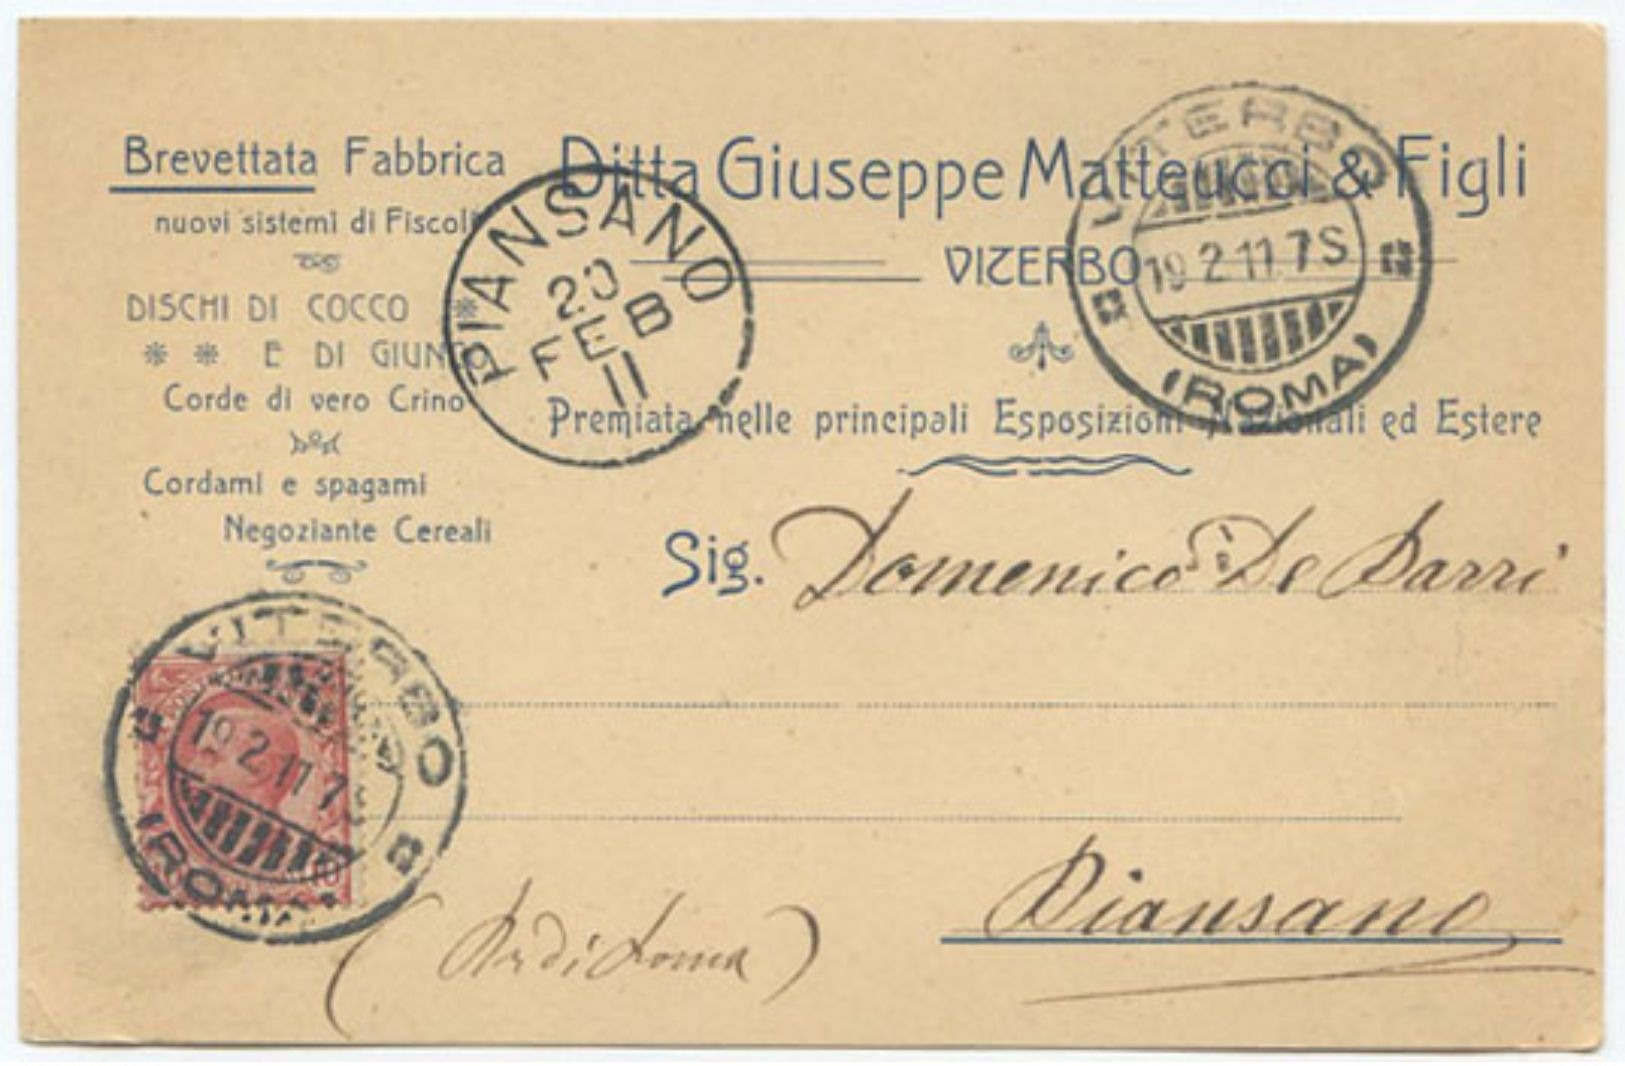 Brevettata Fabbrica
nuovi sistemi di Fiscoli
DISCHI DI COCCO
E DI GIUNCO
Corde di vero Crino
Cordami e spagami
Negoziante Cereali
Ditta Giuseppe Matteucci & Figli
VITERBO
Premiata nelle principali Esposizioni Nazionali ed Estere
PIANSANO
20
FEB
11
VITERBO
19 2 11 7S
(ROMA)
Sig. Domenico De Parri
VITERBO
19 2 11 7
(ROMA)
10
Piansano